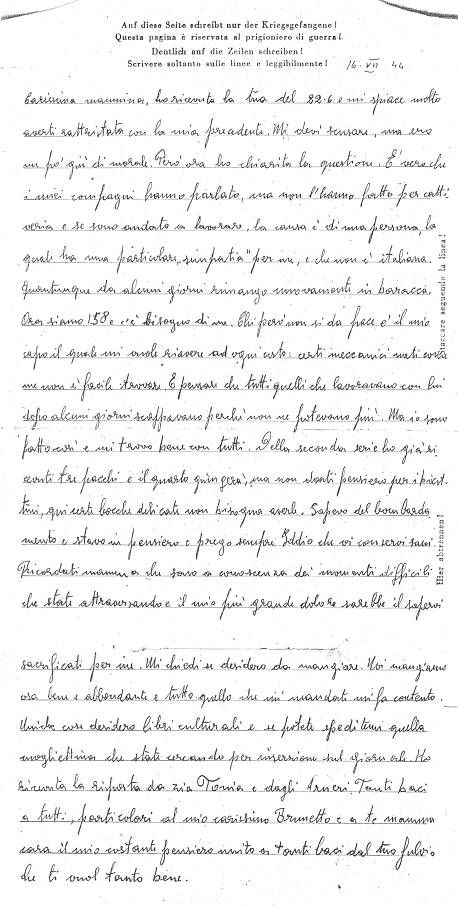 Auf diese Seite schreibt nur der Kriegsgefangene!
Questa pagina è riservata al prigioniero di guerra!
Deutlich auf die Zeilen schreiben!
Scrivere soltanto sulle linee e leggibilmente!
16. VII 44
Carissima mammina, ho ricevuto la tua del 22.6 e mi spiace molto
averti rattristata con la mia precedente. Mi devi scusare, ma ero
un po' giù di morale. Però ora ho chiarita la questione. È vero che
i miei compagni hanno parlato, ma non l'hanno fatto per catti
veria e se sono andato a lavorare, la causa è di una persona, la
quale ha una particolare "simpatia" per me, e che non è italiana.
Quantunque da alcuni giorni rimango nuovamente in baracca.
Ora siamo 158 e c'è bisogno di me. Chi però non si da pace è il mio
capo il quale mi vuole riavere ad ogni costo: certi meccanici
me non è facile trovare. E pensare che tutti quelli che lavoravano con lui
dopo alcuni giorni scappavano perchè non ne potevano più. Ma io sono
fatto così e mi trovo bene con tutti. Della seconda serie ho già ri
cevuti tre pacchi e il quarto giungerà, ma non darti pensiero per i
qui certe bocche delicate non bisogna averle. Sapevo del bombarda
mento e stavo in pensiero e prego sempre Iddio che vi conservi sani
Ricordati mamma che sono a conoscenza dei momenti difficili
che state attraversando e il mio più grande dolore sarebbe il sapervi
Hier abtrennen!
staccare seguendo la linea!
sacrificati per me. Mi chiedi se desidero da mangiare. Noi mangiamo
ora bene e abbondante e tutto quello che mi mandate mi fa contento.
Uniche cose desidero libri culturali e se potete speditemi quella
mogliettina che state cercando per inserzione sul giornale. Ho
ricevuta la risposta da zia Tonia e dagli Tanti baci
a tutti, particolari al mio carissimo Brunetto e a te mamma
cara il mio costante pensiero unito a tanti baci dal tuo Fulvio
che ti vuol tanto bene.